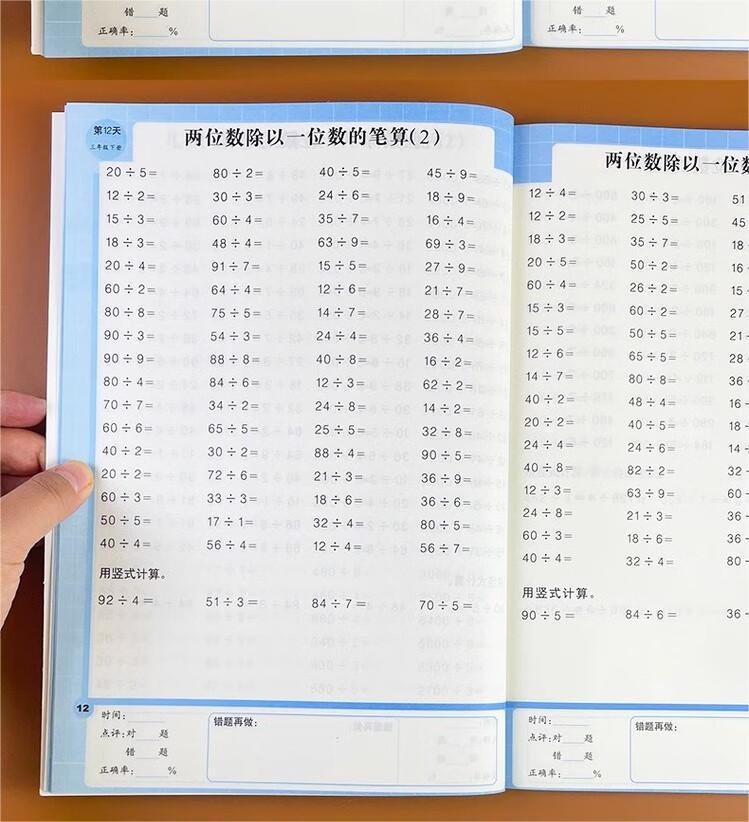 错 题
正确率: %
正确率: %
第12天
三年级下册
两位数除以一位数的笔算(2)
20÷5= 80÷2= 40÷5= 45÷9=
12÷2= 30÷3= 24÷6= 18÷9=
15÷3= 60÷4= 35÷7= 16÷4=
18÷3= 48÷4= 63÷9= 69÷3=
20÷4= 91÷7= 15÷5= 27÷9=
60÷2= 64÷4= 12÷6= 21÷7=
80÷8= 75÷5= 14÷7= 28÷7=
90÷3= 54÷3= 24÷4= 36÷4=
90÷9= 88÷8= 40÷8= 16÷2=
80÷4= 84÷6= 12÷3= 62÷2=
70÷7= 34÷2= 24÷8= 14÷2=
60÷6= 65÷5= 25÷5= 32÷8=
40÷2= 30÷2= 88÷4= 90÷5=
20÷2= 72÷6= 21÷3= 36÷9=
60÷3= 33÷3= 18÷6= 36÷6=
50÷5= 17÷1= 32÷4= 80÷5=
40÷4= 56÷4= 12÷4= 56÷7=
用竖式计算。
92÷4= 51÷3= 84÷7= 70÷5=
12
时间:
点评:对 题
错 题
正确率: %
错题再做:
两位数除以一位数
12÷4= 30÷3= 51
12÷2= 25÷5= 45
18÷3= 35÷7= 18
20÷5= 50÷2= 16
60÷4= 26÷2= 15
15÷3= 60÷2= 27
15÷5= 50÷5= 21
12÷6= 65÷5= 28
14÷7= 80÷8= 36
40÷2= 48÷4= 16
20÷2= 40÷5= 18
24÷4= 24÷6= 14
40÷8= 82÷2= 32
12÷3= 63÷9= 60
24÷8= 21÷3= 36
60÷3= 18÷6= 36
40÷4= 32÷4= 80
用竖式计算。
90÷5= 84÷6= 36
时间:
点评:对 题
错 题
正确率: %
错题再做: